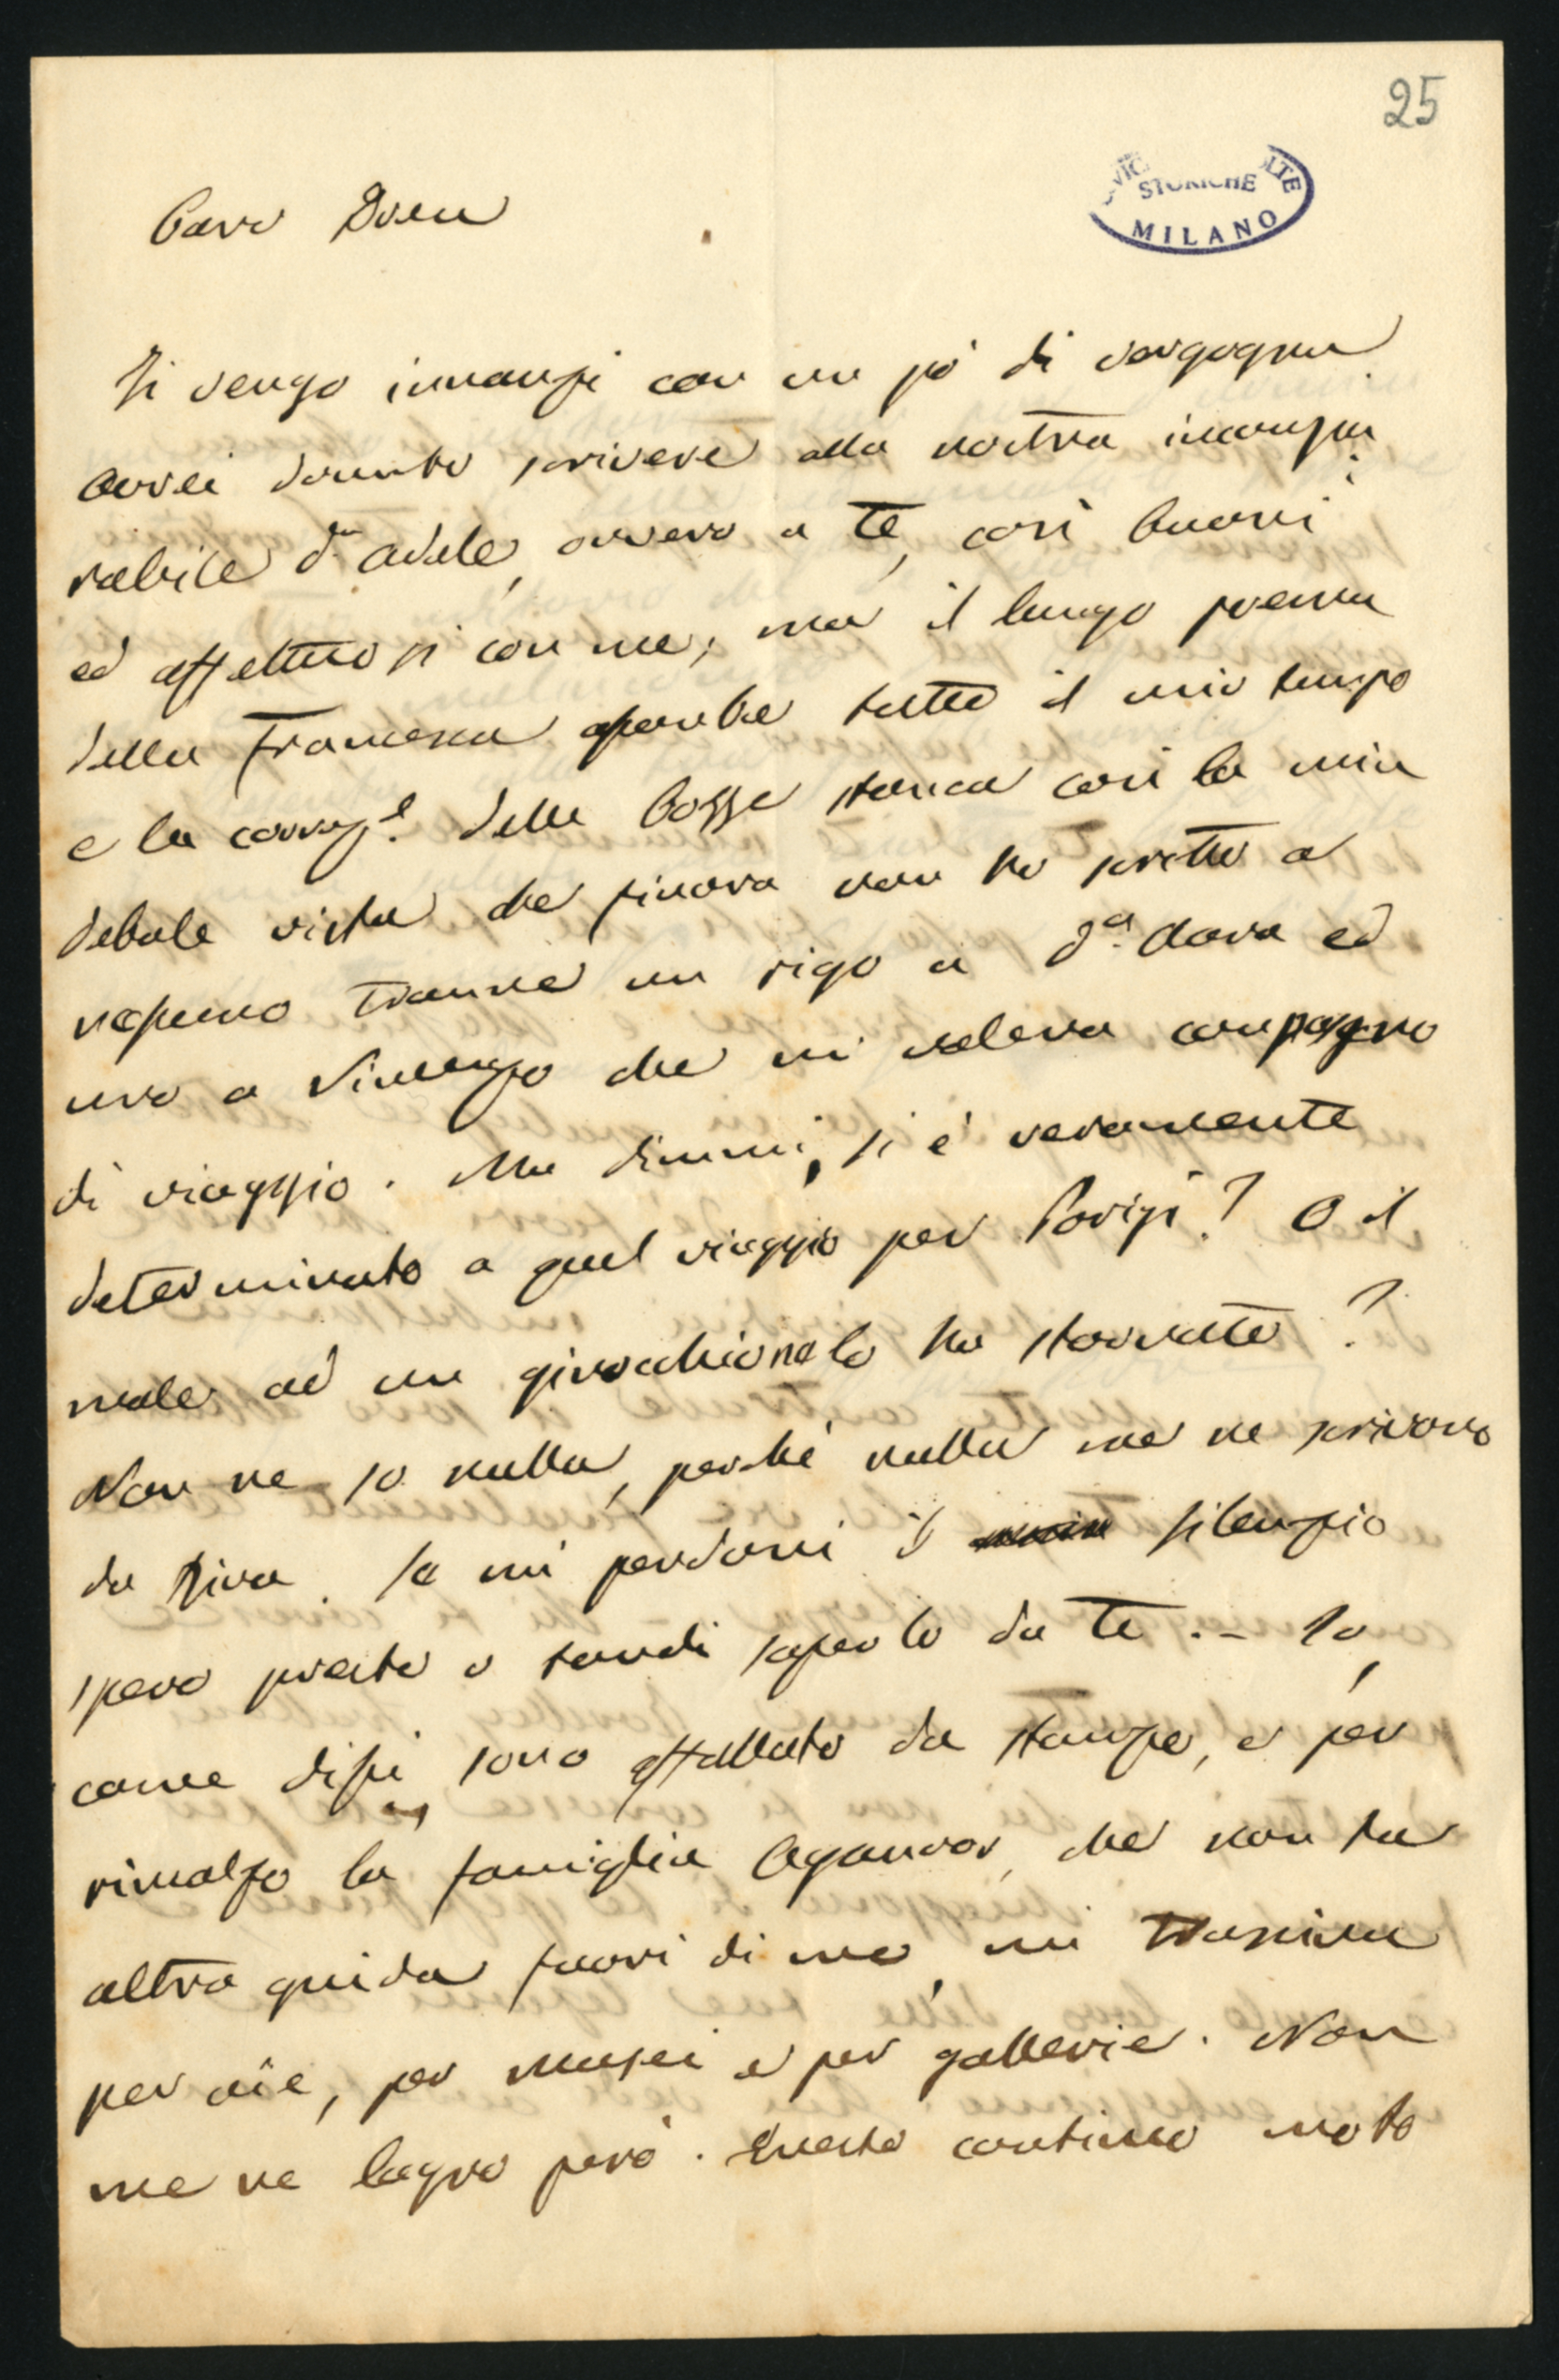 25
STORICHE
MILANO
Caro Duca
Ti vengo innanzi con un pò di vergogna
Avrei dovuto scrivere alla nostra incompa
rabile Da Adele, ovvero a te, così buoni
ed affettuosi con me; ma il lungo poema
della Francesca assorbe tutto il mio tempo
e la correz.e delle bozze stanca così la mia
debole vista che finora non ho scritto a
nessuno tranne un rigo a Da. Clara ed
uno a Vincenzo che mi voleva compagno
di viaggio. Ma dimmi, si è veramente
determinato a quel viaggio per Parigi? O il
male ad un ginocchione lo ha stornato?
Non ne so nulla, perchè nulla me ne scrivono
da Riva. Se mi perdoni il silenzio
spero presto o tardi saperlo da te. – Io,
come dissi, sono affollato da stampe, e per
rimalzo la famiglia Aganoor, che non ha
altra guida fuori di me, mi trascina
per vie, per musei e per gallerie. Non
me ne lagno però. Questo continuo moto